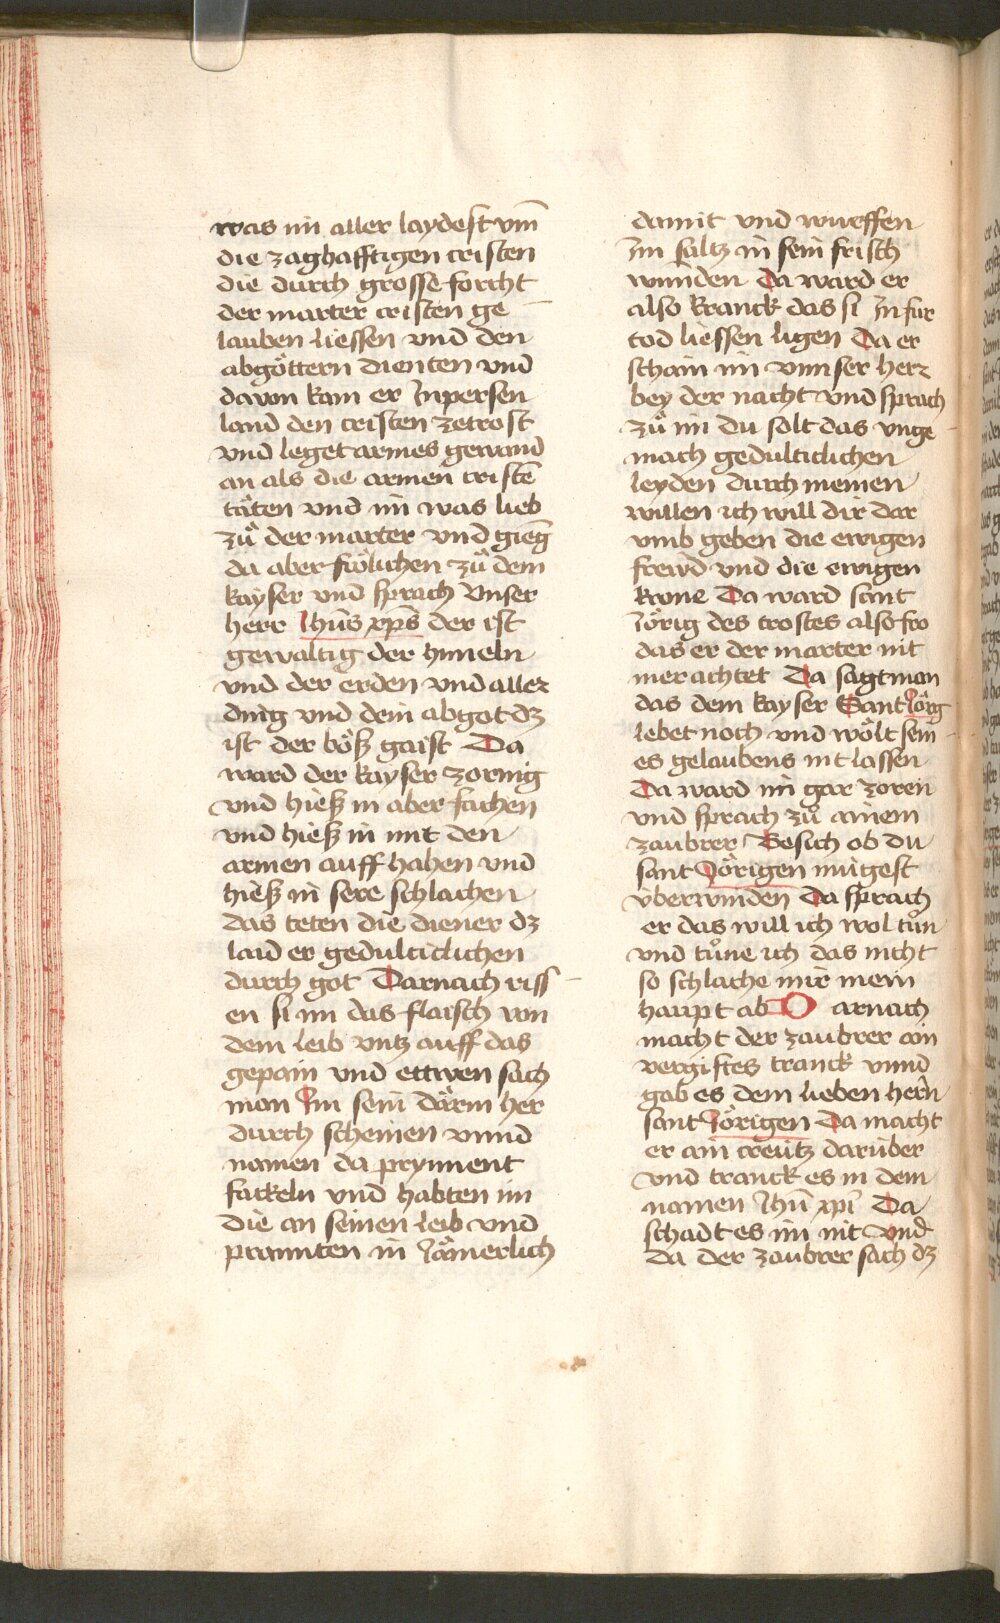 was im aller laydest vm̄
die zaghafftigen cristen
die durch grosse forcht
der marter cristen ge
lauben liessen vnd den
abgöttern dienten vnd
davon kam er Inpersen
land den cristen zetrost
vnd leget armes gewand
an als die armen cristē
täten vnd im was lieb
zů der marter vnd gieng
da aber frölichen zů dem
kayser vnd sprach Vnser
herr Jhūs xp̄s der ist
gewaltig der himeln
vnd der erden vnd aller
ding vnd dein abgot dz
ist der böß gaist Da
ward der kayser zornig
vnd hieß in aber fachen
vnd hieß in mit den
armen auff hahen vnd
hieß in sere schlachen
das teten die diener dz
laid er gedulticlichen
durch got Darnach riss
en si im das flaisch von
dem leib vntz auff das
gepain vnd ettwen sach
man Im sein därm her
durch scheinen vnnd
namen da prynnent
fackeln vnd habten im
die an seinen leib vnd
prannten in Jämerlich
damit vnd wurffen
Im saltz in sein frisch
wunden Da ward er
also kranck das si In für
tod liessen ligen Da er
schain im vnnser herr
bey der nacht vnd sprach
zů im du solt das vnge
mach gedulticlichen
leyden durch meinen
willen ich will dir dar
vmb geben die ewigen
frewd vnd die ewigen
krone Da ward sant
Jörig des trostes also fro
das er der marter nit
mer achtet Da sagt man
das dem kayser Sant Jörg
lebet noch vnd wölt sein
es gelaubens nit lassen
Da ward im gar zoren
vnd sprach zů ainem
zaubrer Besich ob du
sant Jörigen mügest
überwinden Da sprach
er das will ich wol tůn
vnd tůne ich das nicht
so schlache mir mein
haupt ab D arnach
macht der zaubrer ain
vergiftes tranck vnnd
gab es dem lieben herñ
sant Jörigen Da macht
er ain creütz darüber
vnd tranck es in dem
namen Jhū xp̄i Da
schadt es im nit Vnd
da der zaubrer sach dz